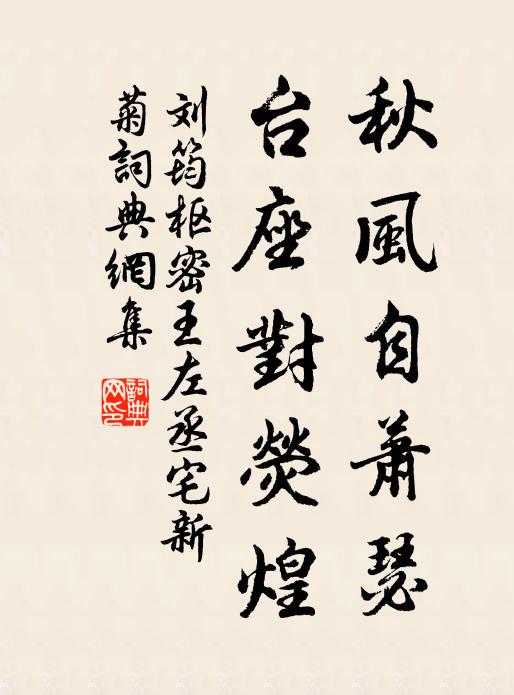 秋風自蕭瑟
台座對熒煌
刘筠枢密王左丞宅新
菊詞典網集
詞典
网印